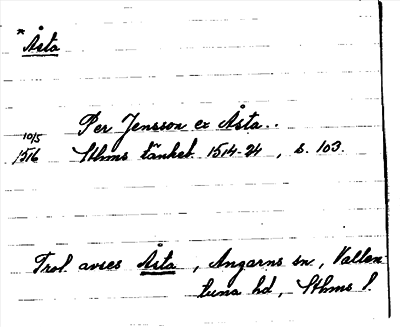 * Åsta
Per Jensson ex Åsta..
10/5
1516 Sthms tänkeb. 1514-24, s. 103.
Trol. avses Åsta, Angarns sn, Vallen
tuna hd, Sthms l.